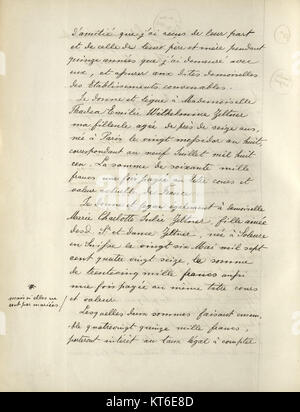 d'amitié que j'ai reçus de leur part
et de celle de leur père et mère pendant
quinze années que j'ai demeuré avec
eux, et assurer aux dites demoiselles
des Etablissements convenables.
Je donne et lègue à Mademoiselle
Thadea Emilie Wilhelmine Zeltner
ma filleule agée de près de seize ans
née à Paris le vingt messidor an huit,
correspondant au neuf Juillet mil huit
cent. La somme de soixante mille
francs une fois payée au titre cours et
valeur actuels de France
Je donne et lègue également à demoiselle
Marie Charlotte Julie Zeltner, fille ainée
desd. Sr et dame Zeltner, née à Soleure
en Suisse le vingt six Mai mil sept
cent quatre vingt seize, la somme
de trente cinq mille francs aussi
une fois payée au même titre cours
et valeur
mais si elles ne
sont pas mariées
Lesquelles deux sommes faisant ensem-
ble quatrevingt quinze mille francs,
porteront intérêt au taux légal à compter
alamy
Image ID: KT6E8D
www.alamy.com